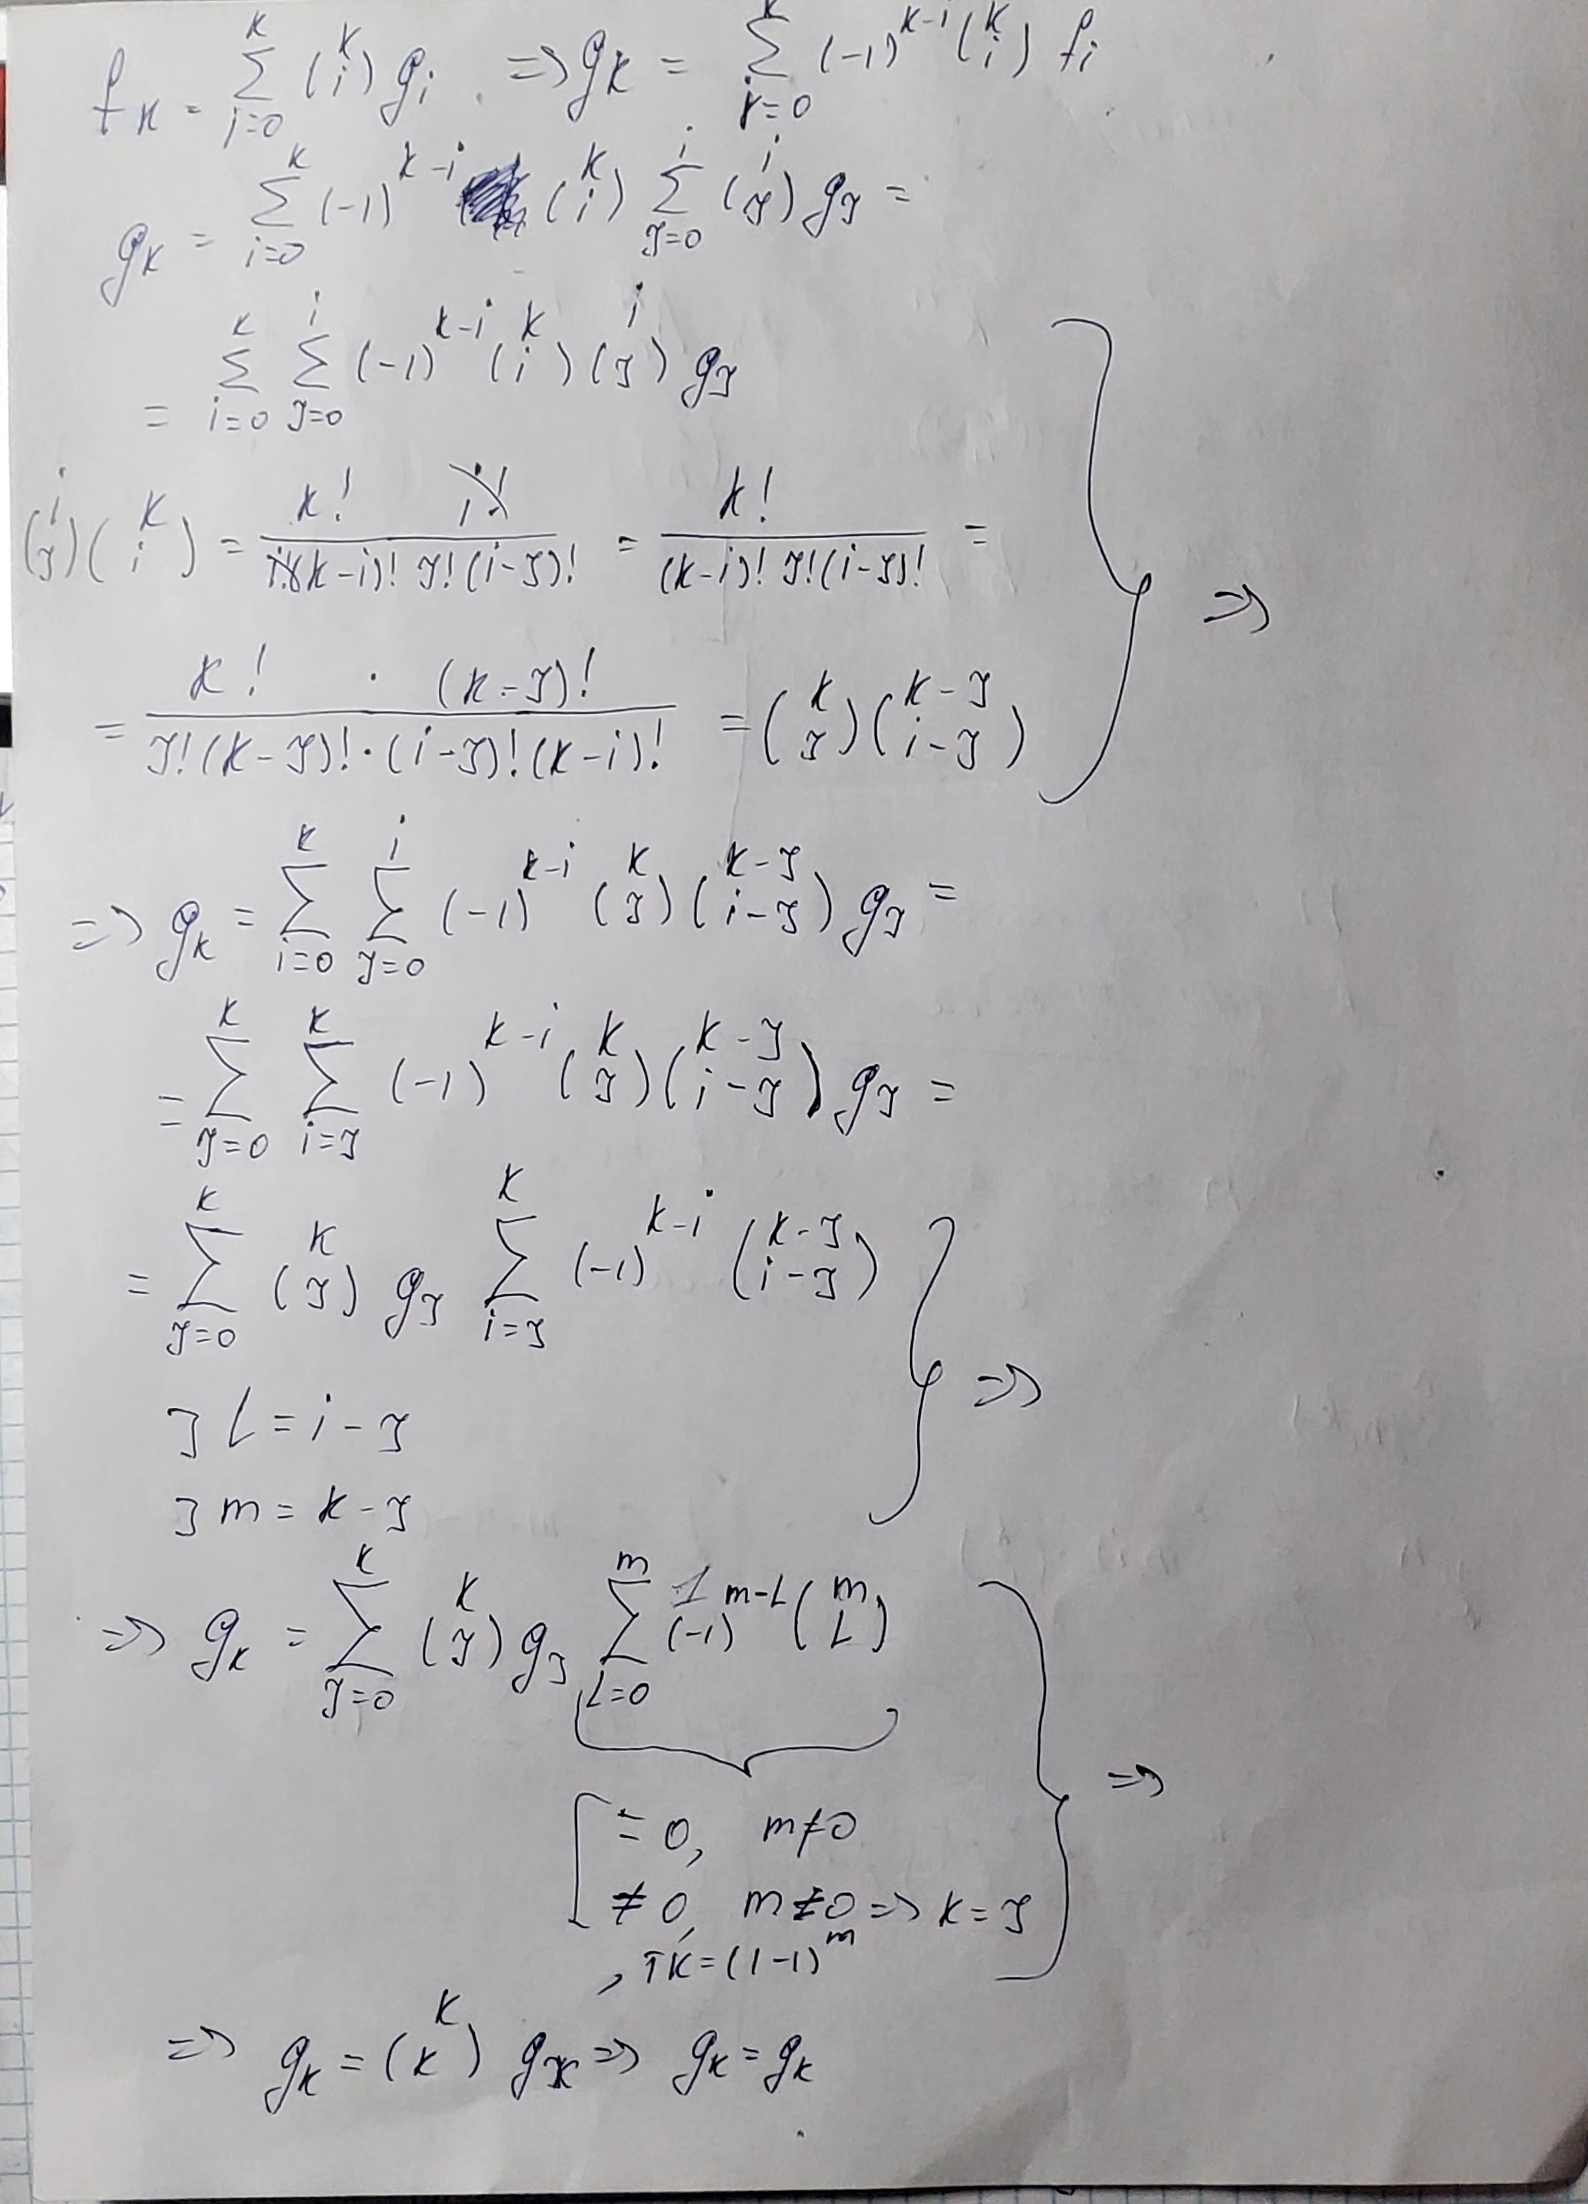 f_k = \sum_{i=0}^{k} \binom{k}{i} g_i \Rightarrow g_k = \sum_{i=0}^{k} (-1)^{k-i} \binom{k}{i} f_i
g_k = \sum_{i=0}^{k} (-1)^{k-i} \binom{k}{i} \sum_{j=0}^{i} \binom{i}{j} g_j =
= \sum_{i=0}^{k} \sum_{j=0}^{i} (-1)^{k-i} \binom{k}{i} \binom{i}{j} g_j
\binom{i}{j} \binom{k}{i} = \frac{k! i!}{i!(k-i)! j!(i-j)!} = \frac{k!}{(k-i)! j!(i-j)!} = \Rightarrow
= \frac{k! \cdot (k-j)!}{j!(k-j)! \cdot (i-j)!(k-i)!} = \binom{k}{j} \binom{k-j}{i-j}
\Rightarrow g_k = \sum_{i=0}^{k} \sum_{j=0}^{i} (-1)^{k-i} \binom{k}{j} \binom{k-j}{i-j} g_j =
= \sum_{j=0}^{k} \sum_{i=j}^{k} (-1)^{k-i} \binom{k}{j} \binom{k-j}{i-j} g_j =
= \sum_{j=0}^{k} \binom{k}{j} g_j \sum_{i=j}^{k} (-1)^{k-i} \binom{k-j}{i-j}
ↄ L = i - j \Rightarrow
ↄ m = k - j
\Rightarrow g_k = \sum_{j=0}^{k} \binom{k}{j} g_j \sum_{L=0}^{m} 1 (-1)^{m-L} \binom{m}{L}
= 0, m \neq 0 \Rightarrow
\neq 0, m = 0 \Rightarrow k = j
, тк = (1-1)^m
\Rightarrow g_k = \binom{k}{k} g_k \Rightarrow g_k = g_k